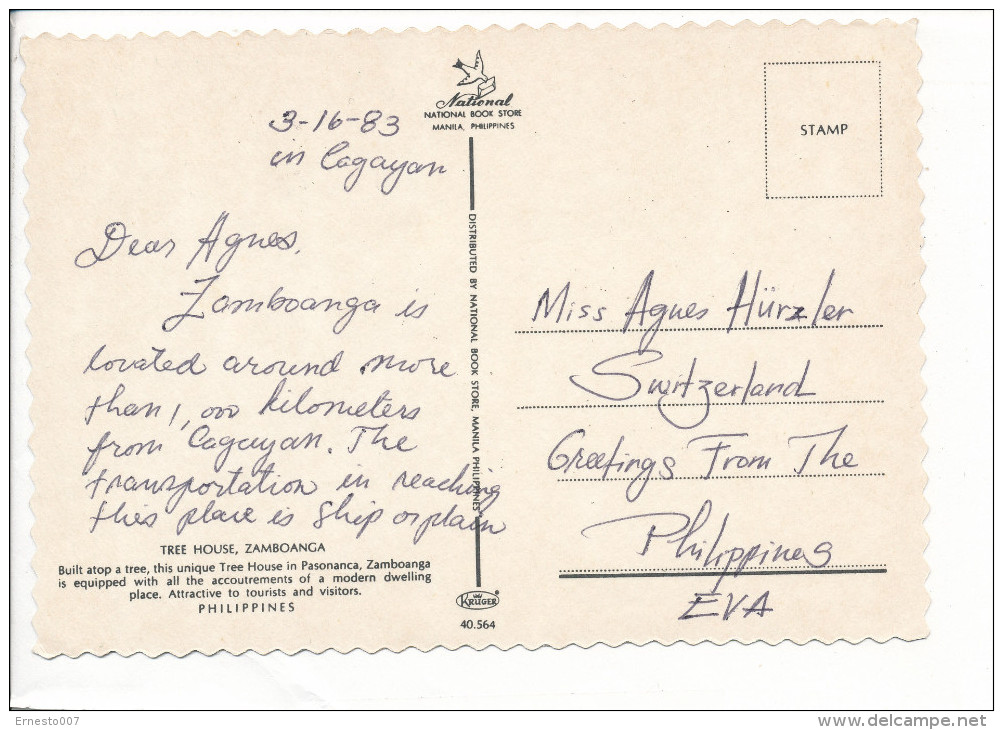 National
NATIONAL BOOK STORE
MANILA, PHILIPPINES
STAMP
3-16-83
in Cagayan
Dear Agnes,
Zamboanga is
lovated around more
than 1,000 kilometers
from Cagayan. The
transportation in reaching
this place is ship or plain
TREE HOUSE, ZAMBOANGA
Built atop a tree, this unique Tree House in Pasonanca, Zamboanga
is equipped with all the accoutrements of a modern dwelling
place. Attractive to tourists and visitors.
PHILIPPINES
DISTRIBUTED BY NATIONAL BOOK STORE, MANILA PHILIPPINES
KRÜGER
40.564
Miss Agnes Hürzler
Switzerland
Greetings From The
Philippines
EVA
Ernesto007
delcampe.net